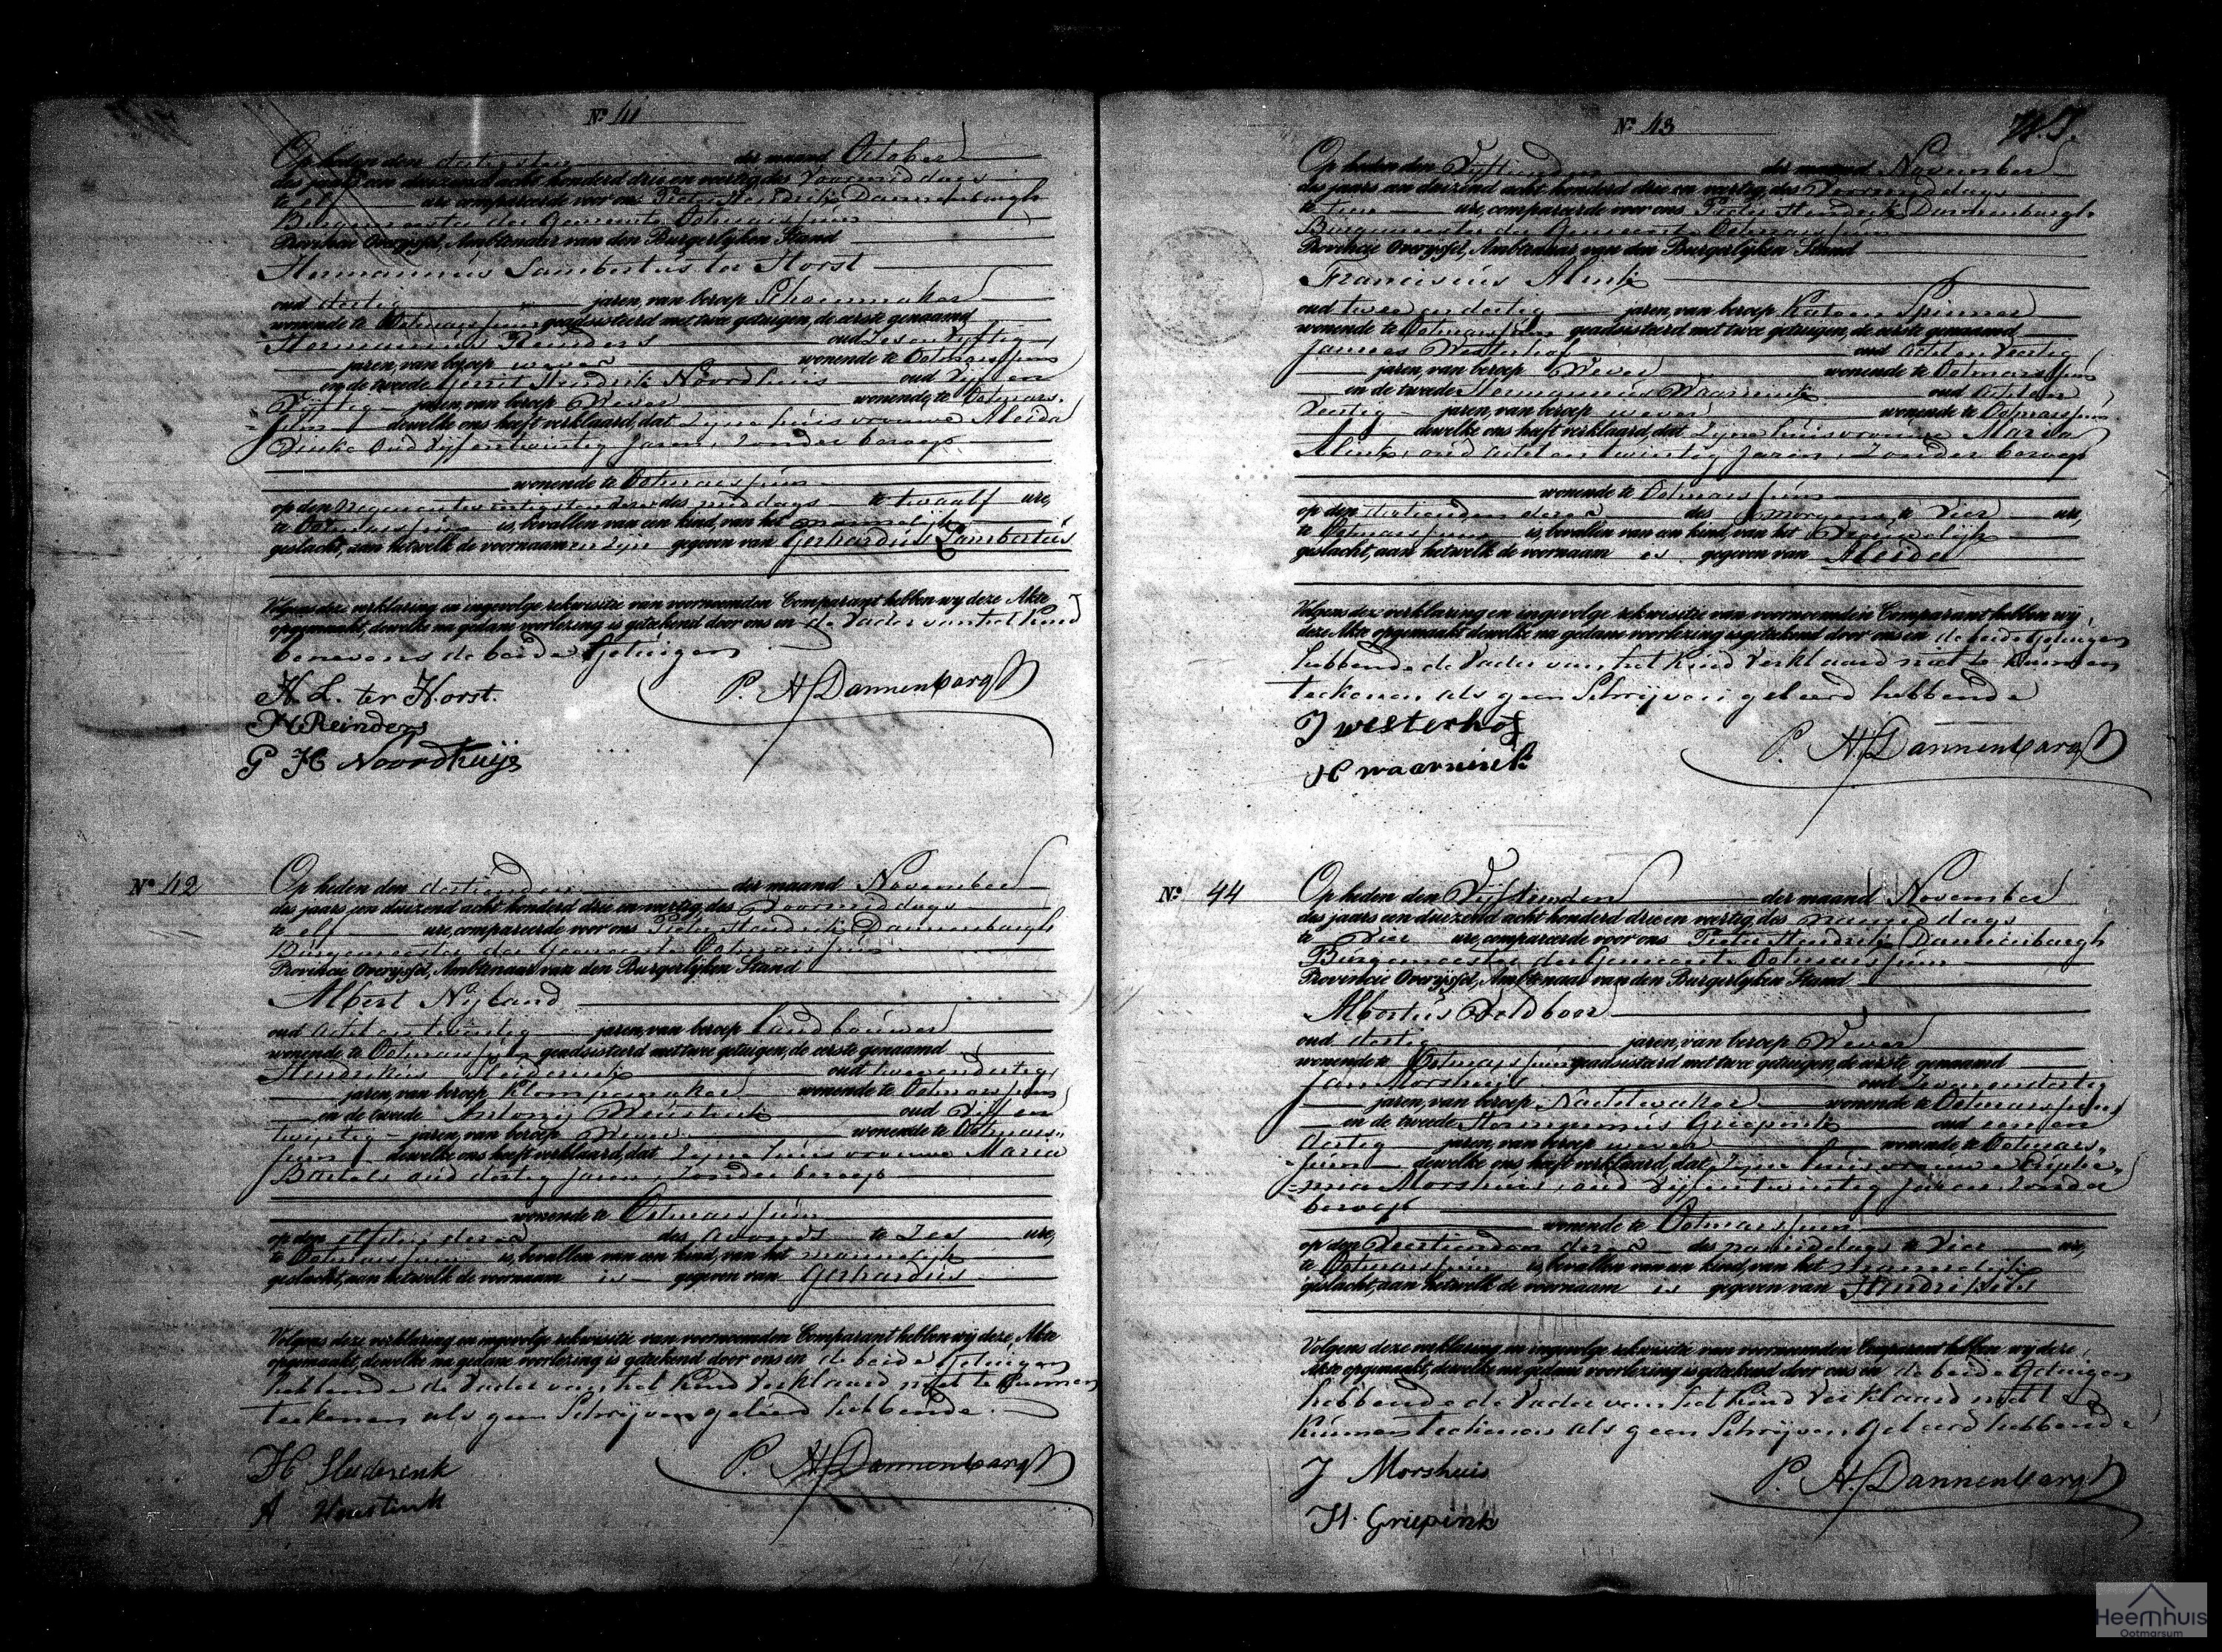 N.o 41
Op heden den dertigsten der maand October
des jaars een duizend acht honderd drie en veertig, des Voormiddags
te elf ure compareerde voor ons Pieter Hendrik Dannenbargh
Burgemeester der Gemeente Ootmarssum
Provincie Overyssel, Ambtenaar van den Burgerlyken Stand
Hermannus Lambertus ter Horst
oud dertig jaren, van beroep Schoenmaker
wonende te Ootmarssum geadsisteerd met twee getuigen, de eerste genaamd
Hermannus Reinders oud Zes en Vyftig
jaren, van beroep wever wonende te Ootmarssum
en de tweede Gerrit Hendrik Noordhuis oud Vyf en
Vyftig jaren, van beroep Wever wonende te Ootmars-
sum dewelke ons heeft verklaard, dat Zyne huisvrouwe Aleida
oud Vyf en twintig Jaren, Zonder beroep
wonende te Ootmarssum
op den negenentwintigsten dezer des middags te twaalf ure,
te Ootmarssum is bevallen van een kind, van het mannelijk
geslacht, aan hetwelk de voornaamen zijn gegeven van Gerhardus Lambertus
Volgens deze verklaring en ingevolge rekwisitie van voornoemden Comparant hebben wy deze Akte
opgemaakt, dewelke na gedane voorlezing is getekend door ons en de Vader van het Kind
benevens de beide Getuigen
H. L. ter Horst. P. H. Dannenbargh
H Reinders
G H Noordhuijs
N.o 42
Op heden den dertienden der maand November
des jaars een duizend acht honderd drie en veertig, des Voormiddags
te elf ure, compareerde voor ons Pieter Hendrik Dannenbargh
Burgemeester der Gemeente Ootmarssum
Provincie Overyssel, Ambtenaar van den Burgerlyken Stand
Albert Nyland
oud acht en twintig jaren, van beroep Landbouwer
wonende te Ootmarssum geadsisteerd met twee getuigen, de eerste genaamd
Hendrikus Sleiderink oud twee en dertig
jaren, van beroep Klompemaker wonende te Ootmarssum
en de tweede Antony oud Vyf en
twintig jaren, van beroep Wever wonende te Ootmars-
sum dewelke ons heeft verklaard, dat Zyne huisvrouwe Maria
Bartels oud dertig Jaren, Zonder beroep
wonende te Ootmarssum
op den elfden dezer des avonds te Zes ure,
te Ootmarssum is bevallen van een kind, van het mannelijk
geslacht, aan hetwelk de voornaam is gegeven van Gerhardus
Volgens deze verklaring en ingevolge rekwisitie van voornoemden Comparant hebben wij deze Akte
opgemaakt, dewelke na gedane voorlezing is getekend door ons en de beide Getuigen
hebbende de Vader van het Kind Verklaard niet te Kunnen
teekenen als geen Schryven geleerd hebbende.
H Sleiderink P. H. Dannenbargh
A
N.o 43
Op heden den Vyftienden der maand November
des jaars een duizend acht honderd drie en veertig, des Voormiddags
te tien ure, compareerde voor ons Pieter Hendrik Dannenbargh
Burgemeester der Gemeente Ootmarssum
Provincie Overyssel, Ambtenaar van den Burgerlyken Stand
Franciscus Alink
oud twee en dertig jaren, van beroep Katoen Spinner
wonende te Ootmarssum geadsisteerd met twee getuigen, de eerste genaamd
Jannes Westerhof oud acht en Veertig
jaren, van beroep Wever wonende te Ootmarssum
en de tweede Hermannus Waarnink oud acht en
Veertig jaren, van beroep wever wonende te Ootmarssum
dewelke ons heeft verklaard, dat Zyne huisvrouwe Maria
Alink, oud acht en twintig Jaren, Zonder beroep
wonende te Ootmarssum
op den dertienden dezer des smorgens te Vier ure,
te Ootmarssum is bevallen van een kind, van het Vrouwelijk
geslacht, aan hetwelk de voornaam is gegeven van Aleida
Volgens deze verklaring en ingevolge rekwisitie van voornoemden Comparant hebben wij
deze Akte opgemaakt dewelke na gedane voorlezing is getekend door ons en de beide Getuigen
hebbende de Vader van het Kind Verklaard niet te Kunnen
teekenen als geen Schryven geleerd hebbende
J westerhof P. H. Dannenbargh
H waarnink
N.o 44
Op heden den Vyftienden der maand November
des jaars een duizend acht honderd drie en veertig, des namiddags
te Vier ure, compareerde voor ons Pieter Hendrik Dannenbargh
Burgemeester der Gemeente Ootmarssum
Provincie Overijssel, Ambtenaar van den Burgerlyken Stand
Albertus Veldboer
oud dertig jaren, van beroep Wever
wonende te Ootmarssum geadsisteerd met twee getuigen, de eerste genaamd
Jan Morshuis oud Zeven en dertig
jaren, van beroep Nachtwaker wonende te Ootmarssum
en de tweede Hermannus Griepink oud een en
dertig jaren, van beroep wever wonende te Ootmars-
sum dewelke ons heeft verklaard, dat Zyne huisvrouwe Euphe-
mia Morshuis, oud Vyf en twintig Jaren Zonder
beroep
wonende te Ootmarssum
op den Veertienden dezer des namiddags te Vier ure,
te Ootmarssum is bevallen van een kind, van het mannelijk
geslacht, aan hetwelk de voornaam is gegeven van Hendrikus
Volgens deze verklaring en ingevolge rekwisitie van voornoemden Comparant hebben wy deze
Akte opgemaakt, dewelke na gedane voorlezing is getekend door ons en de beide Getuigen
hebbende de Vader van het Kind Verklaard niet te
Kunnen teekenen als geen Schryven Geleerd hebbende
J Morshuis P. H. Dannenbargh
H. Griepink
Heemhuis
Ootmarsum